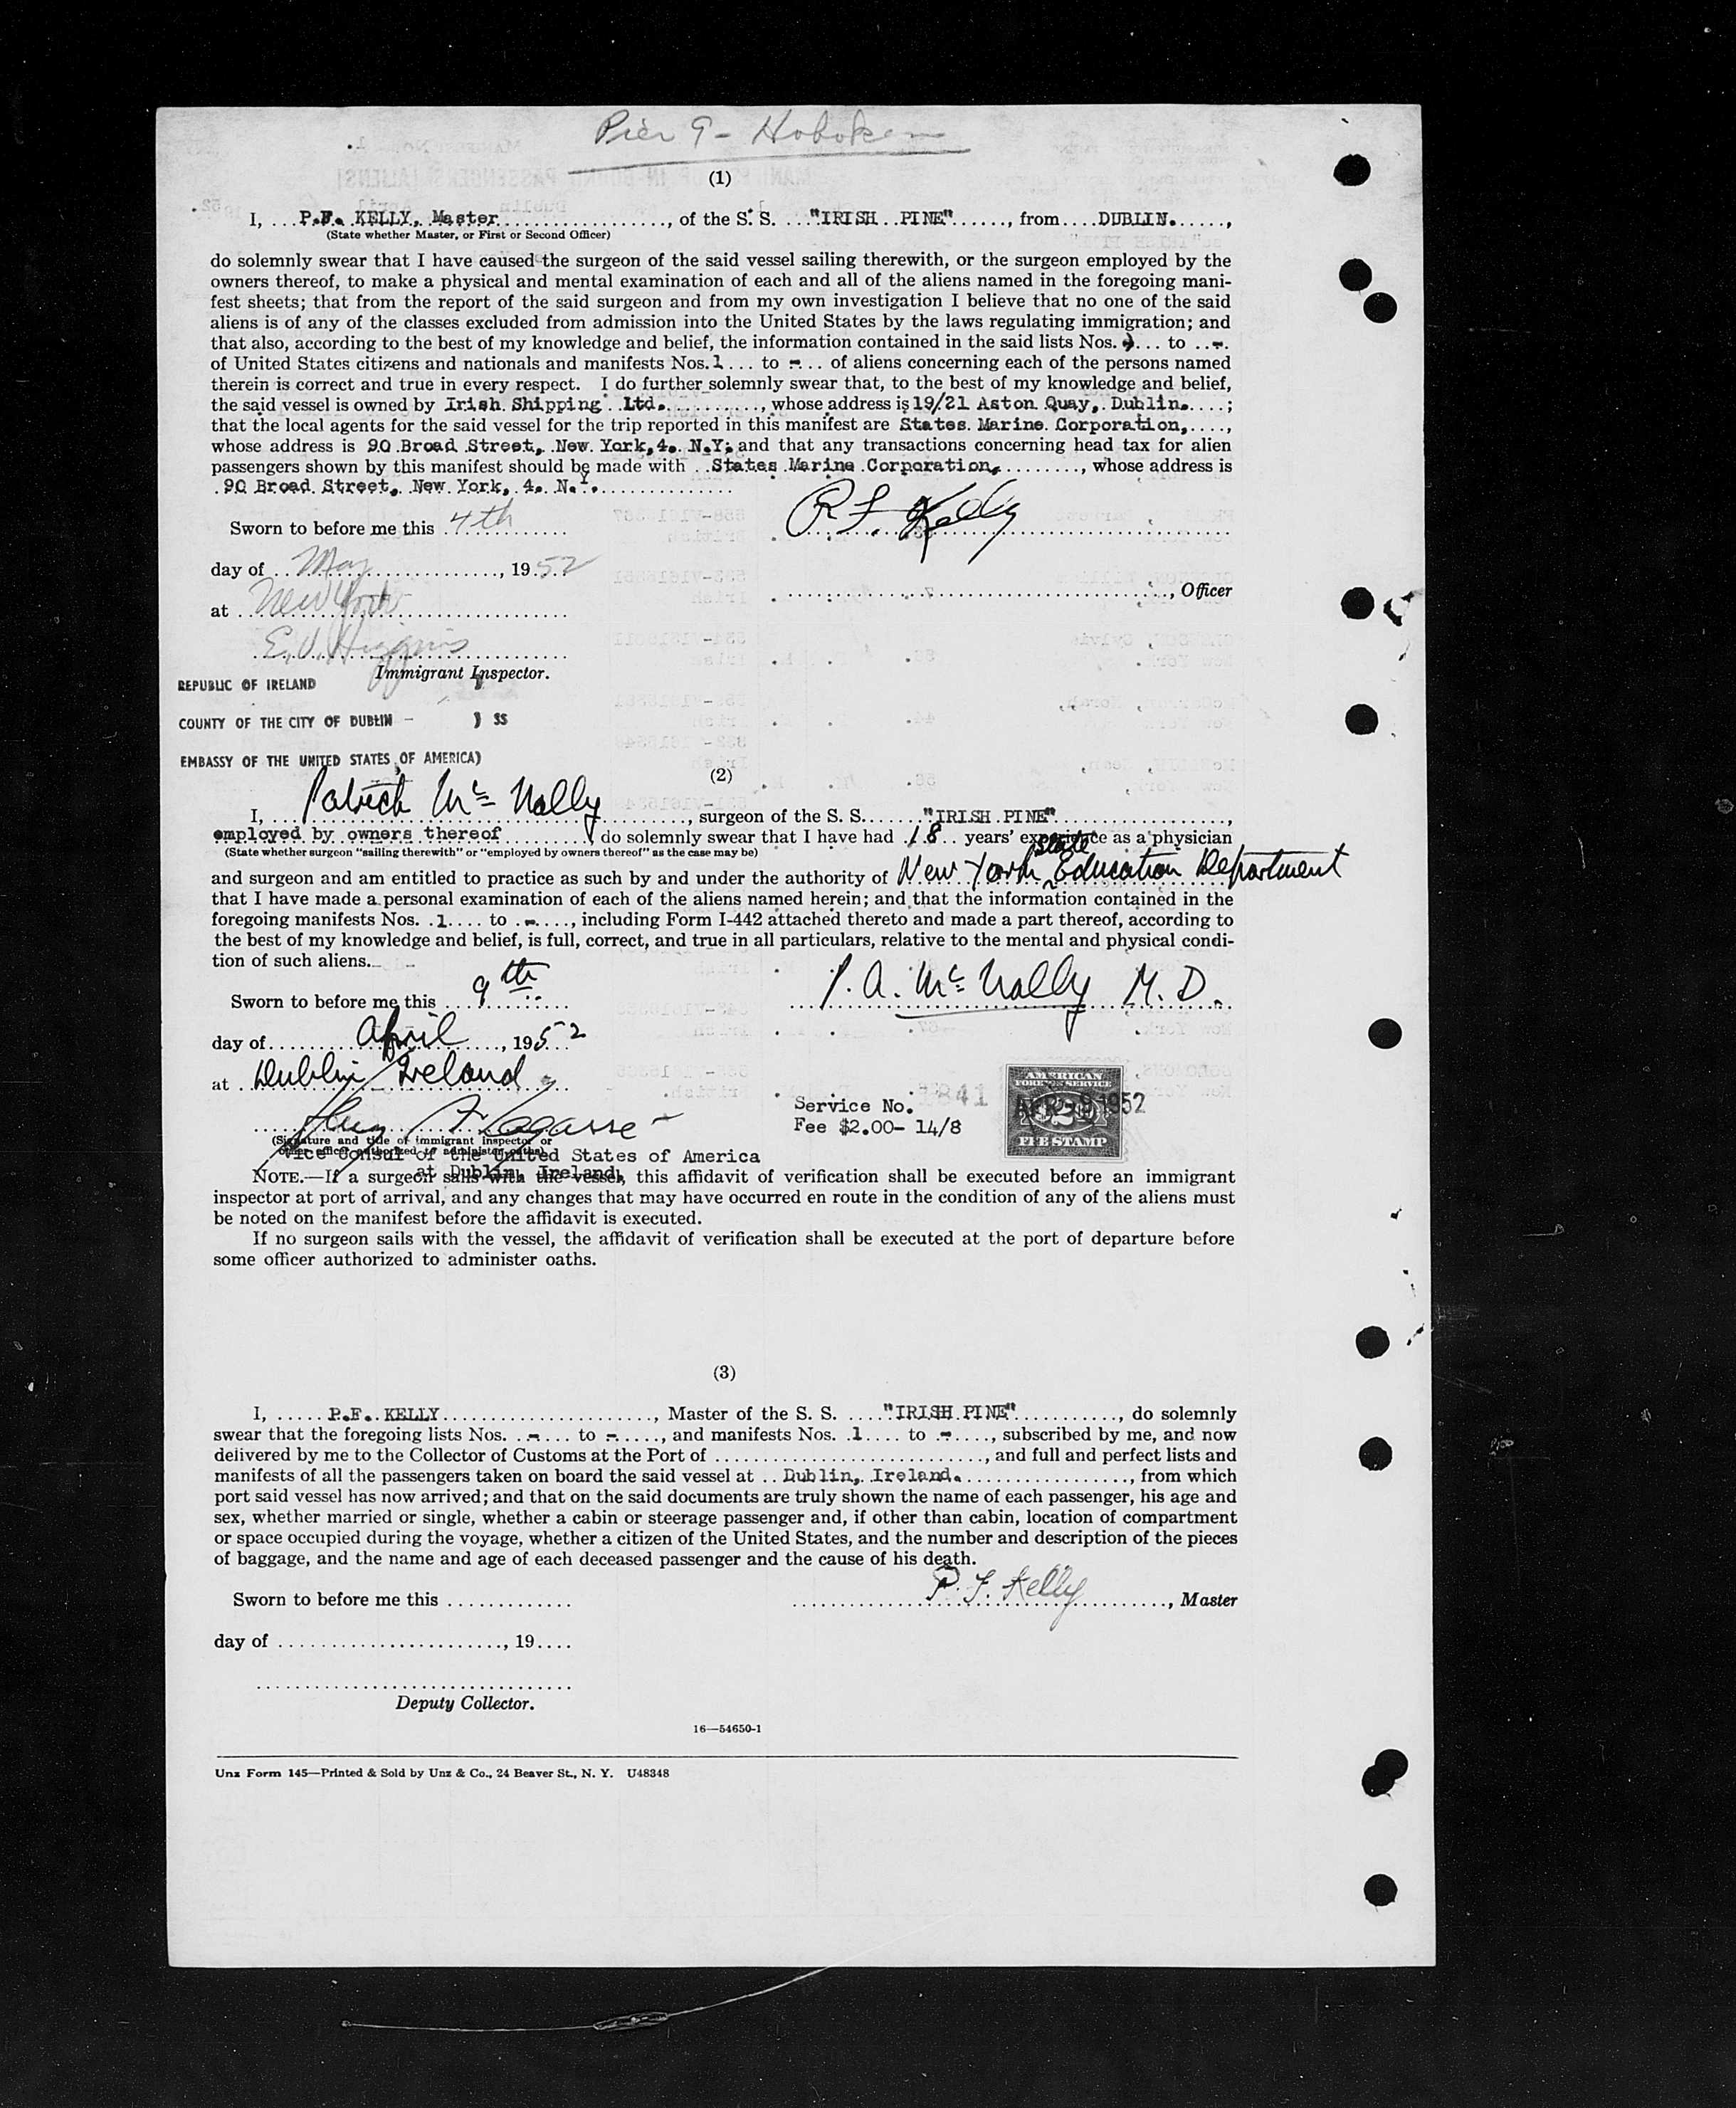 Pier 9 - Hoboken
(1)
I, ... P.F. KELLY, Master ..................., of the S. S. .... "IRISH PINE" ......, from .... DUBLIN. .....,
(State whether Master, or First or Second Officer)
do solemnly swear that I have caused the surgeon of the said vessel sailing therewith, or the surgeon employed by the
owners thereof, to make a physical and mental examination of each and all of the aliens named in the foregoing mani-
fest sheets; that from the report of the said surgeon and from my own investigation I believe that no one of the said
aliens is of any of the classes excluded from admission into the United States by the laws regulating immigration; and
that also, according to the best of my knowledge and belief, the information contained in the said lists Nos. .... to ..-.
of United States citizens and nationals and manifests Nos. 1 ... to -... of aliens concerning each of the persons named
therein is correct and true in every respect. I do further solemnly swear that, to the best of my knowledge and belief,
the said vessel is owned by Irish Shipping Ltd. .........., whose address is 19/21 Aston Quay, Dublin. ....;
that the local agents for the said vessel for the trip reported in this manifest are States Marine Corporation, ....,
whose address is 90 Broad Street, New York, 4. N.Y; and that any transactions concerning head tax for alien
passengers shown by this manifest should be made with .. States Marine Corporation, ........, whose address is
. 90 Broad Street, New York, 4. N.Y. ..............
Sworn to before me this 4th
P F. Kelly
day of May, 1952
......................................, Officer
at New York
E. V. Higgins
Immigrant Inspector.
REPUBLIC OF IRELAND )
COUNTY OF THE CITY OF DUBLIN - ) SS
EMBASSY OF THE UNITED STATES OF AMERICA)
(2)
I, Patrick Mc Nally ........., surgeon of the S. S. ...... "IRISH PINE" ...................,
employed by owners thereof ........., do solemnly swear that I have had . 18 .. years' experience as a physician
(State whether surgeon "sailing therewith" or "employed by owners thereof" as the case may be)
and surgeon and am entitled to practice as such by and under the authority of New York State Education Department
that I have made a personal examination of each of the aliens named herein; and that the information contained in the
foregoing manifests Nos. . 1 .... to . - ...., including Form I-442 attached thereto and made a part thereof, according to
the best of my knowledge and belief, is full, correct, and true in all particulars, relative to the mental and physical condi-
tion of such aliens.
Sworn to before me this 9th
P. A. Mc Nally M. D.
day of April, 1952
at Dublin, Ireland
Service No. 841
Fee $2.00- 14/8
AMERICAN
FOREIGN SERVICE
2
FEE STAMP
APR -9 1952
(Signature and title of immigrant inspector or
other officer authorized to administer oaths)
Vice Consul of the United States of America
at Dublin, Ireland
NOTE.—If a surgeon sails with the vessel, this affidavit of verification shall be executed before an immigrant
inspector at port of arrival, and any changes that may have occurred en route in the condition of any of the aliens must
be noted on the manifest before the affidavit is executed.
If no surgeon sails with the vessel, the affidavit of verification shall be executed at the port of departure before
some officer authorized to administer oaths.
(3)
I, ..... P.F. KELLY ......................, Master of the S. S. .... "IRISH PINE" ..........., do solemnly
swear that the foregoing lists Nos. .. - .... to - ....., and manifests Nos. . 1 .... to . - ...., subscribed by me, and now
delivered by me to the Collector of Customs at the Port of ............................, and full and perfect lists and
manifests of all the passengers taken on board the said vessel at .. Dublin, Ireland. ................., from which
port said vessel has now arrived; and that on the said documents are truly shown the name of each passenger, his age and
sex, whether married or single, whether a cabin or steerage passenger and, if other than cabin, location of compartment
or space occupied during the voyage, whether a citizen of the United States, and the number and description of the pieces
of baggage, and the name and age of each deceased passenger and the cause of his death.
Sworn to before me this .............
P. F. Kelly, Master
day of ........................, 19....
Deputy Collector.
16—54650-1
Unz Form 145—Printed & Sold by Unz & Co., 24 Beaver St., N. Y. U48348